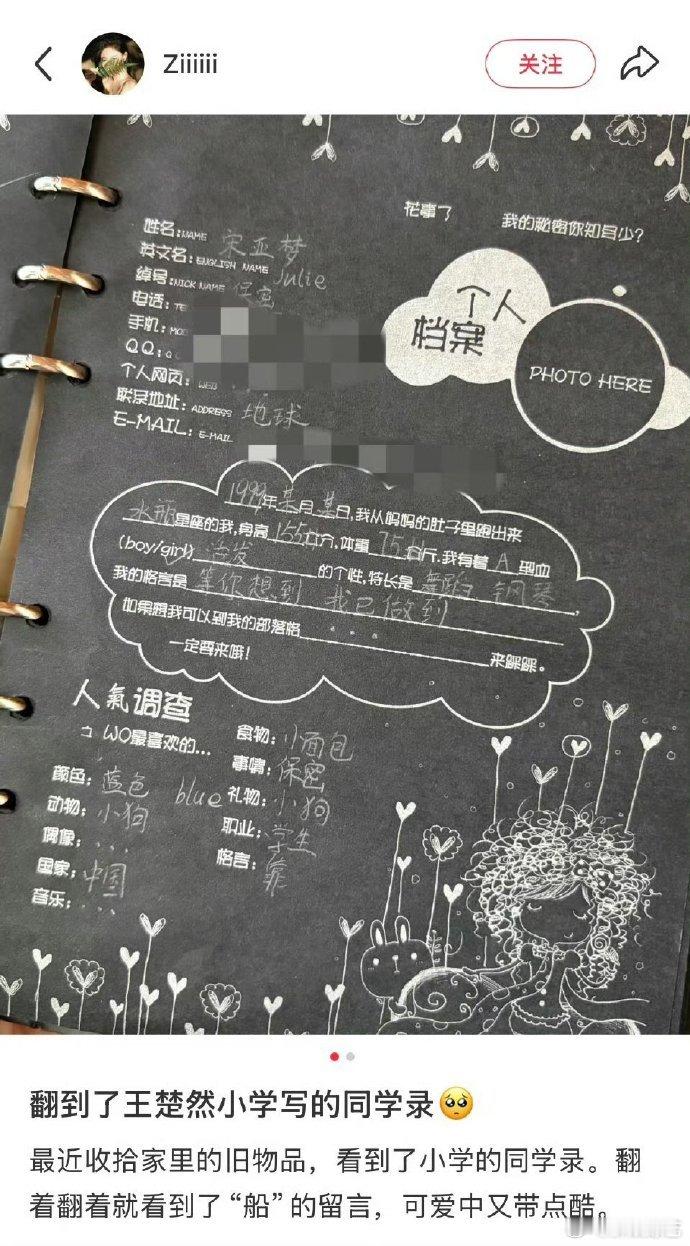 Ziiiiii
关注
花事了
我的秘密你知多少?
姓名:NAME 宋亚梦
英文名:ENGLISH NAME Julie
绰号:NICK NAME 保密
电话:
手机:
QQ:
个人网页:WEB
联系地址:ADDRESS 地球
E-MAIL:E-MAIL
个人
档案
PHOTO HERE
1999年某月某日,我从妈妈的肚子里跑出来
水瓶星座的我,身高155公分,体重75公斤,我有着A型血
(boy/girl) 活发的个性,特长是舞蹈 钢琴,
我的格言是等你想到 我已做到
如果跟我可以到我的部落格...
一定要来哦! 来踩踩。
人氣调查
WO最喜欢的...
颜色:蓝色 blue
动物:小狗
偶像:...
国家:中国
音乐:...
食物:小面包
事情:保密
礼物:小狗
职业:学生
格言:
翻到了王楚然小学写的同学录🥺
最近收拾家里的旧物品，看到了小学的同学录。翻
着翻着就看到了“船”的留言，可爱中又带点酷。